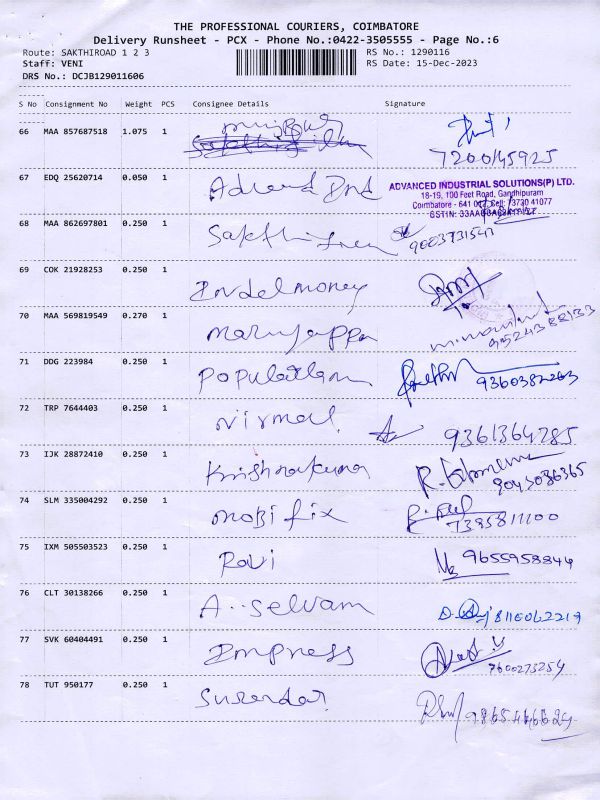 THE PROFESSIONAL COURIERS, COIMBATORE
Delivery Runsheet - PCX - Phone No.:0422-3505555 - Page No.:6
Route: SAKTHIROAD 1 2 3 RS No.: 1290116
Staff: VENI RS Date: 15-Dec-2023
DRS No.: DCJB129011606
S No Consignment No Weight PCS Consignee Details Signature
66 MAA 857687518 1.075 1
7200145925
67 EDQ 25620714 0.050 1 Advand Ind
ADVANCED INDUSTRIAL SOLUTIONS(P) LTD.
18-19, 100 Feet Road, Gandhipuram
Coimbatore - 641 012. Cell: 73730 41077
GSTIN:
68 MAA 862697801 0.250 1 Sakthi 9003731541
69 COK 21928253 0.250 1 Indel money
70 MAA 569819549 0.270 1 Maruyappa
9524388133
71 DDG 223984 0.250 1 Populatlam 9360382263
72 TRP 7644403 0.250 1 Nirmal 9361364285
73 IJK 28872410 0.250 1 Krishnakumar 9043086365
74 SLM 335004292 0.250 1 mobi fix 7385811100
75 IXM 505503523 0.250 1 Ravi 9655958844
76 CLT 30138266 0.250 1 A. Selvam 8110062219
77 SVK 60404491 0.250 1 Impress 7600273259
78 TUT 950177 0.250 1 Surendar 9865466624